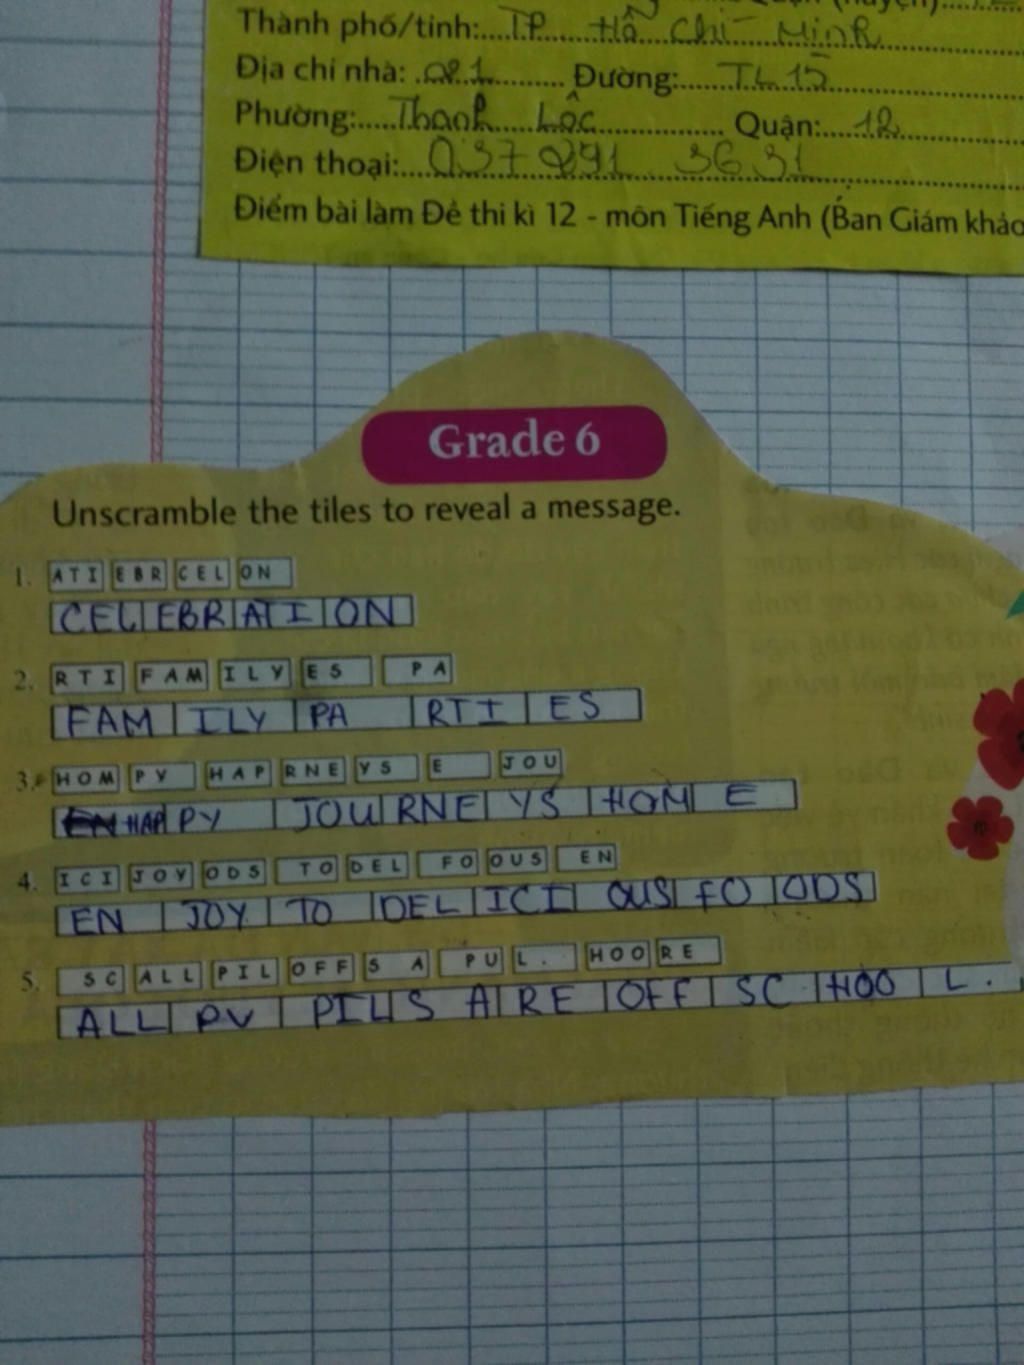 Thành phố/tỉnh: TP Hồ Chí Minh
Địa chỉ nhà: 291 Đường: TL15
Phường: Thạnh Lộc Quận: 12
Điện thoại: 037 291 3631
Điểm bài làm Đề thi kì 12 - môn Tiếng Anh (Ban Giám khảo
Grade 6
Unscramble the tiles to reveal a message.
1. ATI EBR CEL ON
CEL EBR ATI ON
2. RTI FAM ILY ES PA
FAM ILY PA RTI ES
3. HOM PY HAP RNE YS E JOU
HAP PY JOU RNE YS HOM E
4. ICI JOY ODS TO DEL FO OUS EN
EN JOY TO DEL ICI OUS FO ODS
5. SC ALL PIL OFF S A PU L. HOO RE
ALL PU PIL S A RE OFF SC HOO L.